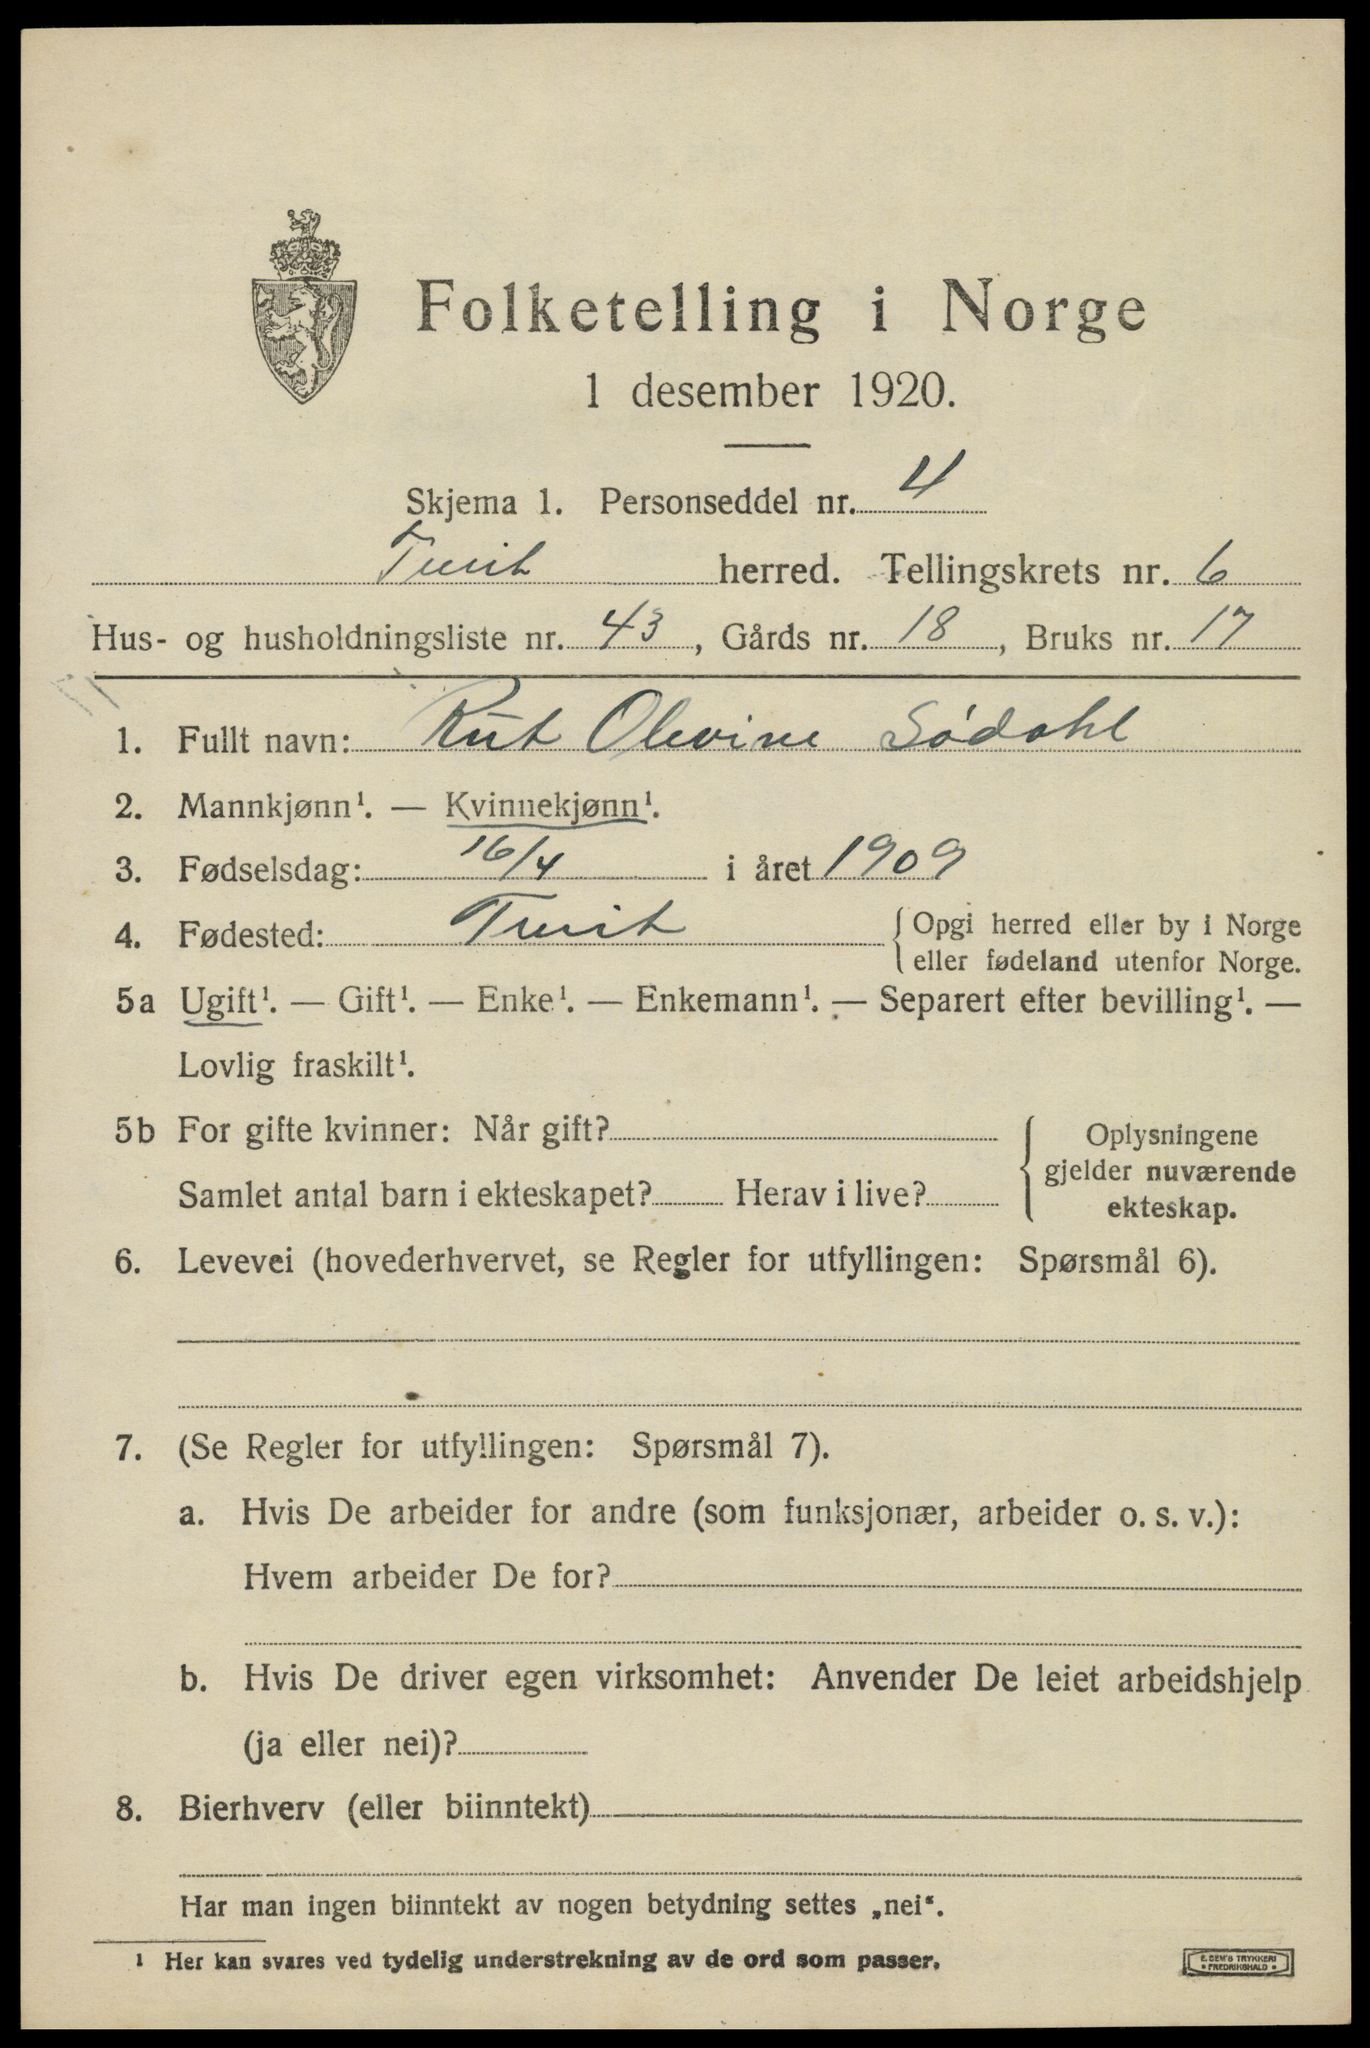 Folketelling i Norge
1 desember 1920.
Skjema 1. Personseddel nr. 4
Tusit herred. Tellingskrets nr. 6
Hus- og husholdningsliste nr. 43, Gårds nr. 18, Bruks nr. 17
1. Fullt navn: Rut Olevine Sódahl
2. Mannkjønn¹. — Kvinnekjønn¹.
3. Fødselsdag: 16/4 i året 1909
4. Fødested: Tusit { Opgi herred eller by i Norge
eller fødeland utenfor Norge.
5a Ugift¹. — Gift¹. — Enke¹. — Enkemann¹. — Separert efter bevilling¹. —
Lovlig fraskilt¹.
5b For gifte kvinner: Når gift?
Samlet antal barn i ekteskapet? Herav i live?
{ Oplysningene
gjelder nuværende
ekteskap.
6. Levevei (hovederhvervet, se Regler for utfyllingen: Spørsmål 6).
7. (Se Regler for utfyllingen: Spørsmål 7).
a. Hvis De arbeider for andre (som funksjonær, arbeider o. s. v.):
Hvem arbeider De for?
b. Hvis De driver egen virksomhet: Anvender De leiet arbeidshjelp
(ja eller nei)?
8. Bierhverv (eller biinntekt)
Har man ingen biinntekt av nogen betydning settes „nei“.
¹ Her kan svares ved tydelig understrekning av de ord som passer.
E. SEM'S TRYKKERI
• FREDRIKSHALD •